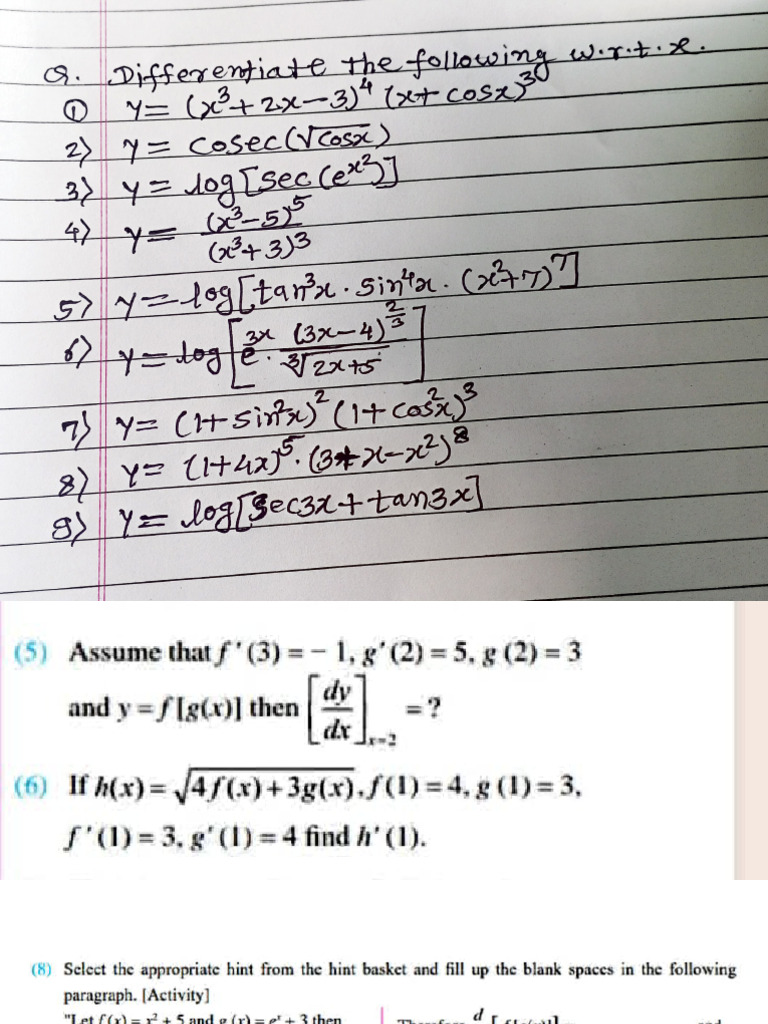 Q. Differentiate the following w.r.t.x.
① y = (x³+2x-3)⁴ (x+cosx)³
2) y = cosec(√cosx)
3) y = log[sec(e^x²)]
4) y = (x³-5)⁵ / (x³+3)³
5) y = log[tan³x · sin⁴x · (x²+7)⁷]
6) y = log[e^3x · (3x-4)^(2/3) / ∛(2x+5)]
7) y = (1+sin²x)² (1+cos²x)³
8) y = (1+4x)⁵ · (3+x-x²)⁸
9) y = log[sec3x+tan3x]
(5) Assume that f'(3) = - 1, g'(2) = 5, g (2) = 3
and y = f [g(x)] then [dy/dx]x=2 = ?
(6) If h(x) = √4f(x)+3g(x), f(1) = 4, g (1) = 3,
f'(1) = 3, g'(1) = 4 find h'(1).
(8) Select the appropriate hint from the hint basket and fill up the blank spaces in the following
paragraph. [Activity]
"Let f(x) = x² + 5 and g(x) = eˣ + 3 then
Therefore d